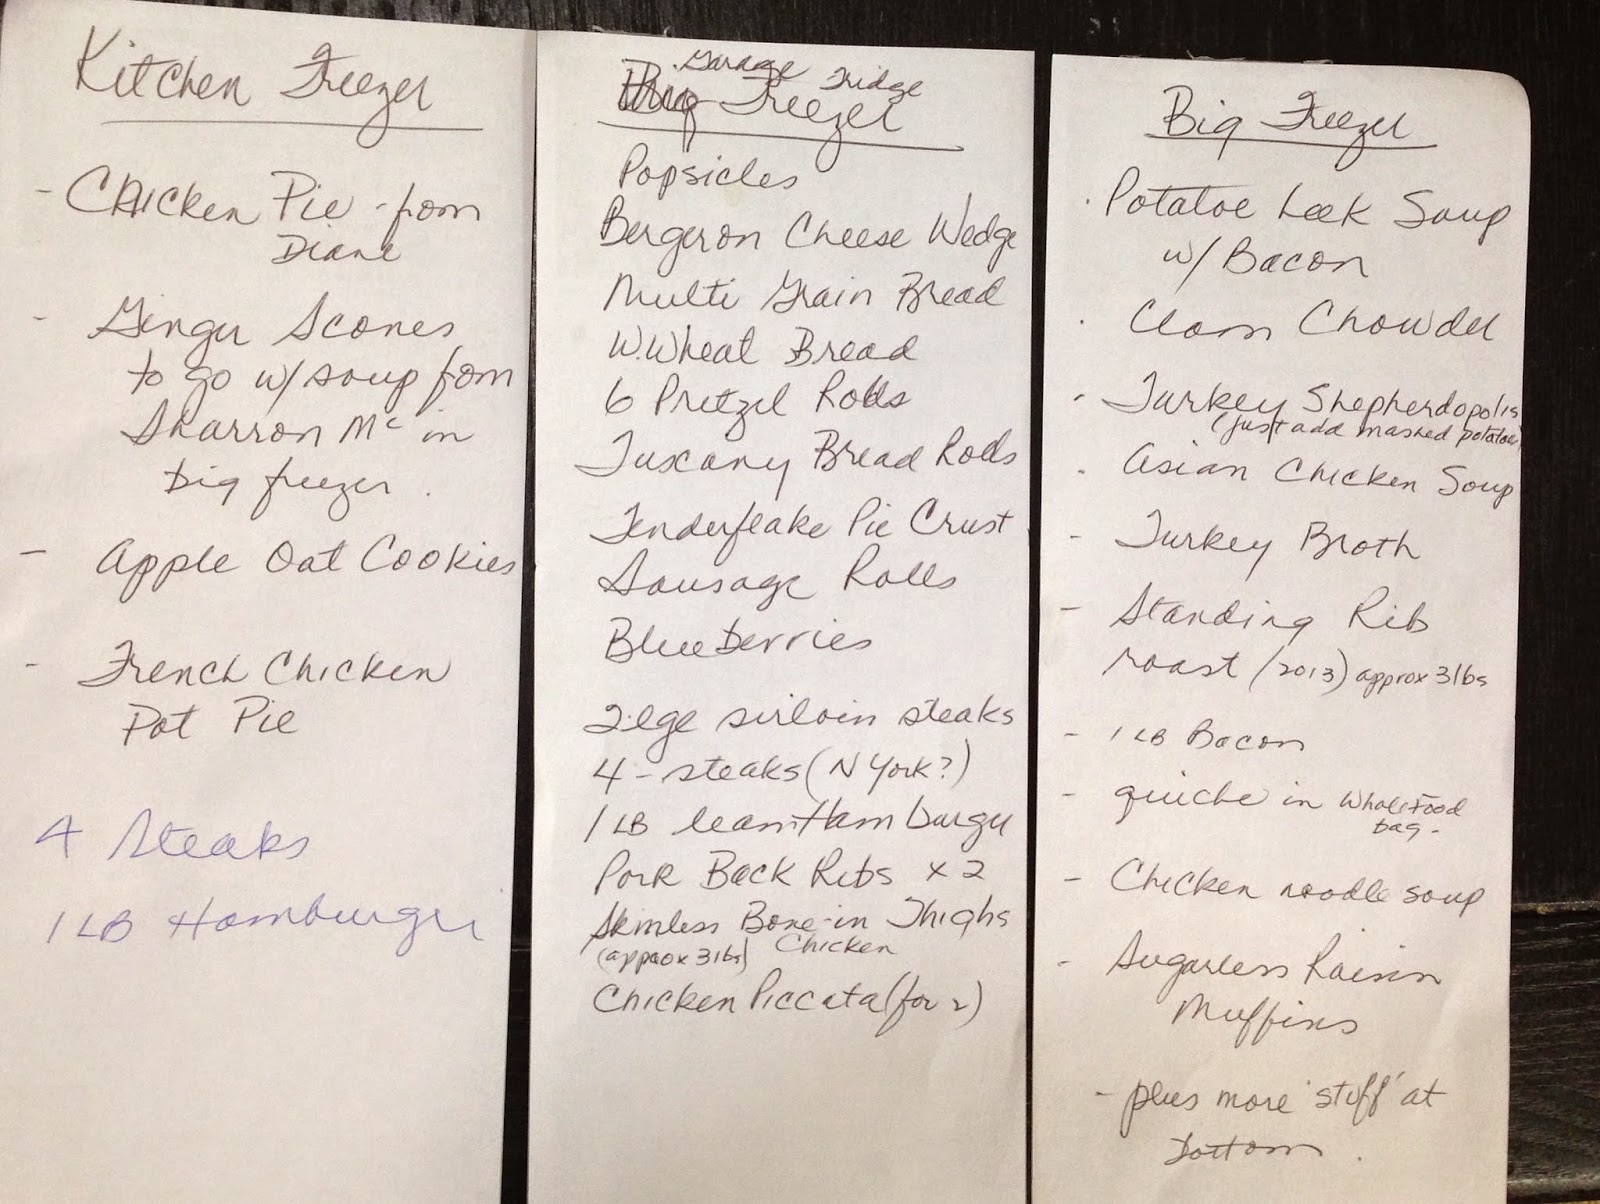 Kitchen Freezer
- Chicken Pie - from
Diane
- Ginger Scones
to go w/ soup from
Sharron Mc in
big freezer.
- Apple Oat Cookies
- French Chicken
Pot Pie
4 Steaks
1 LB Hamburger
Garage Fridge
Big Freezer
Popsicles
Bergeron Cheese Wedge
Multi Grain Bread
W.Wheat Bread
6 Pretzel Rolls
Tuscany Bread Rolls
Tenderflake Pie Crust
Sausage Rolls
Blueberries
2 lge sirloin steaks
4 - steaks (N York?)
1 LB lean Hamburger
Pork Back Ribs x 2
Skinless Bone-in Thighs
(approx 3lbs) Chicken
Chicken Piccata (for 2)
Big Freezer
· Potatoe Leek Soup
w/ Bacon
· Clam Chowder
- Turkey Shepherdopolis
(just add mashed potatoes)
· Asian Chicken Soup
- Turkey Broth
- Standing Rib
roast (2013) approx 3lbs
- 1 LB Bacon
- quiche in Whole Food
bag -
- Chicken noodle soup
- Sugarless Raisin
Muffins
- plus more 'stuff' at
bottom.